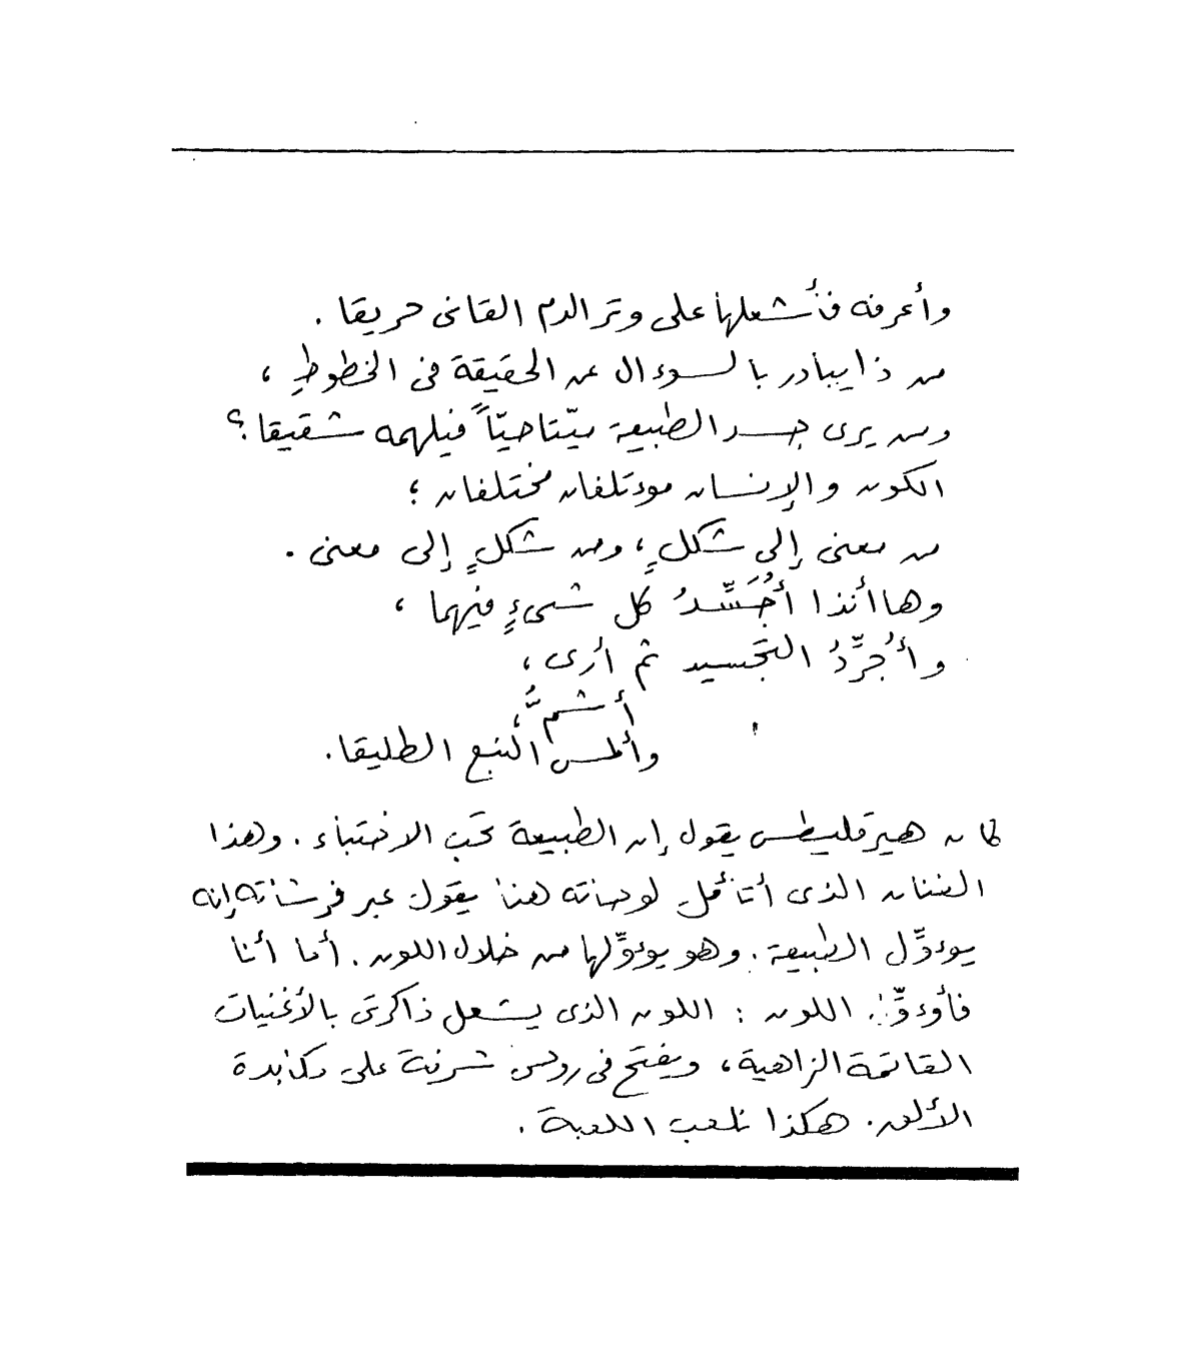 وأعرفه فأشعلها على وتر الدم القانى حريقا .
من ذا يبادر بالسوءال عن الحقيقة فى الخطوطِ ،
ومن يرى جسد الطبيعة ميّتا حيّاً فيلهمه شقيقا ؟
الكون والإنسان موءتلفان مختلفان ؛
من معنى إلى شكلٍ ، ومن شكلٍ إلى معنى .
وها أنذا أُجَسِّدُ كل شىءٍ فيهما ،
وأُجرِّدُ التجسيد ثم أرى ،
أشمُّ ،
وألمس النبع الطليقا .
كان هيرقليطس يقول إن الطبيعة تحب الاختباء . وهذا
الفنان الذى أتأمل لوحاته هنا يقول عبر فرشاته إنه
يوءوِّل الطبيعة . وهو يوءوِّلها من خلال اللون . أما أنا
فأوءوِّل اللون : اللون الذى يشعل ذاكرتى بالأغنيات
القاتمة الزاهية ، ويفتح فى روحى شرفة على مكابدة
الألق . هكذا نلعب اللعبة .